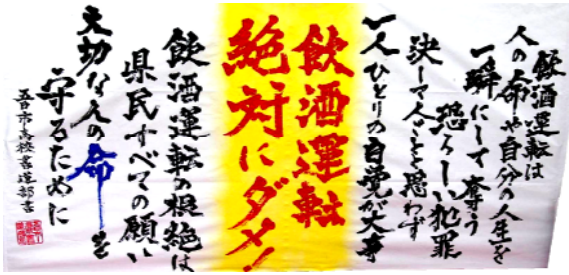 飲酒運転は
人の命や自分の人生を
一瞬にして奪う
恐ろしい犯罪
決して人ごとと思わず
一人ひとりの自覚が大事
飲酒運転
絶対にダメ!
飲酒運転の根絶は
県民すべての願い
大切な人の命を
守るために
五日市高校書道部書